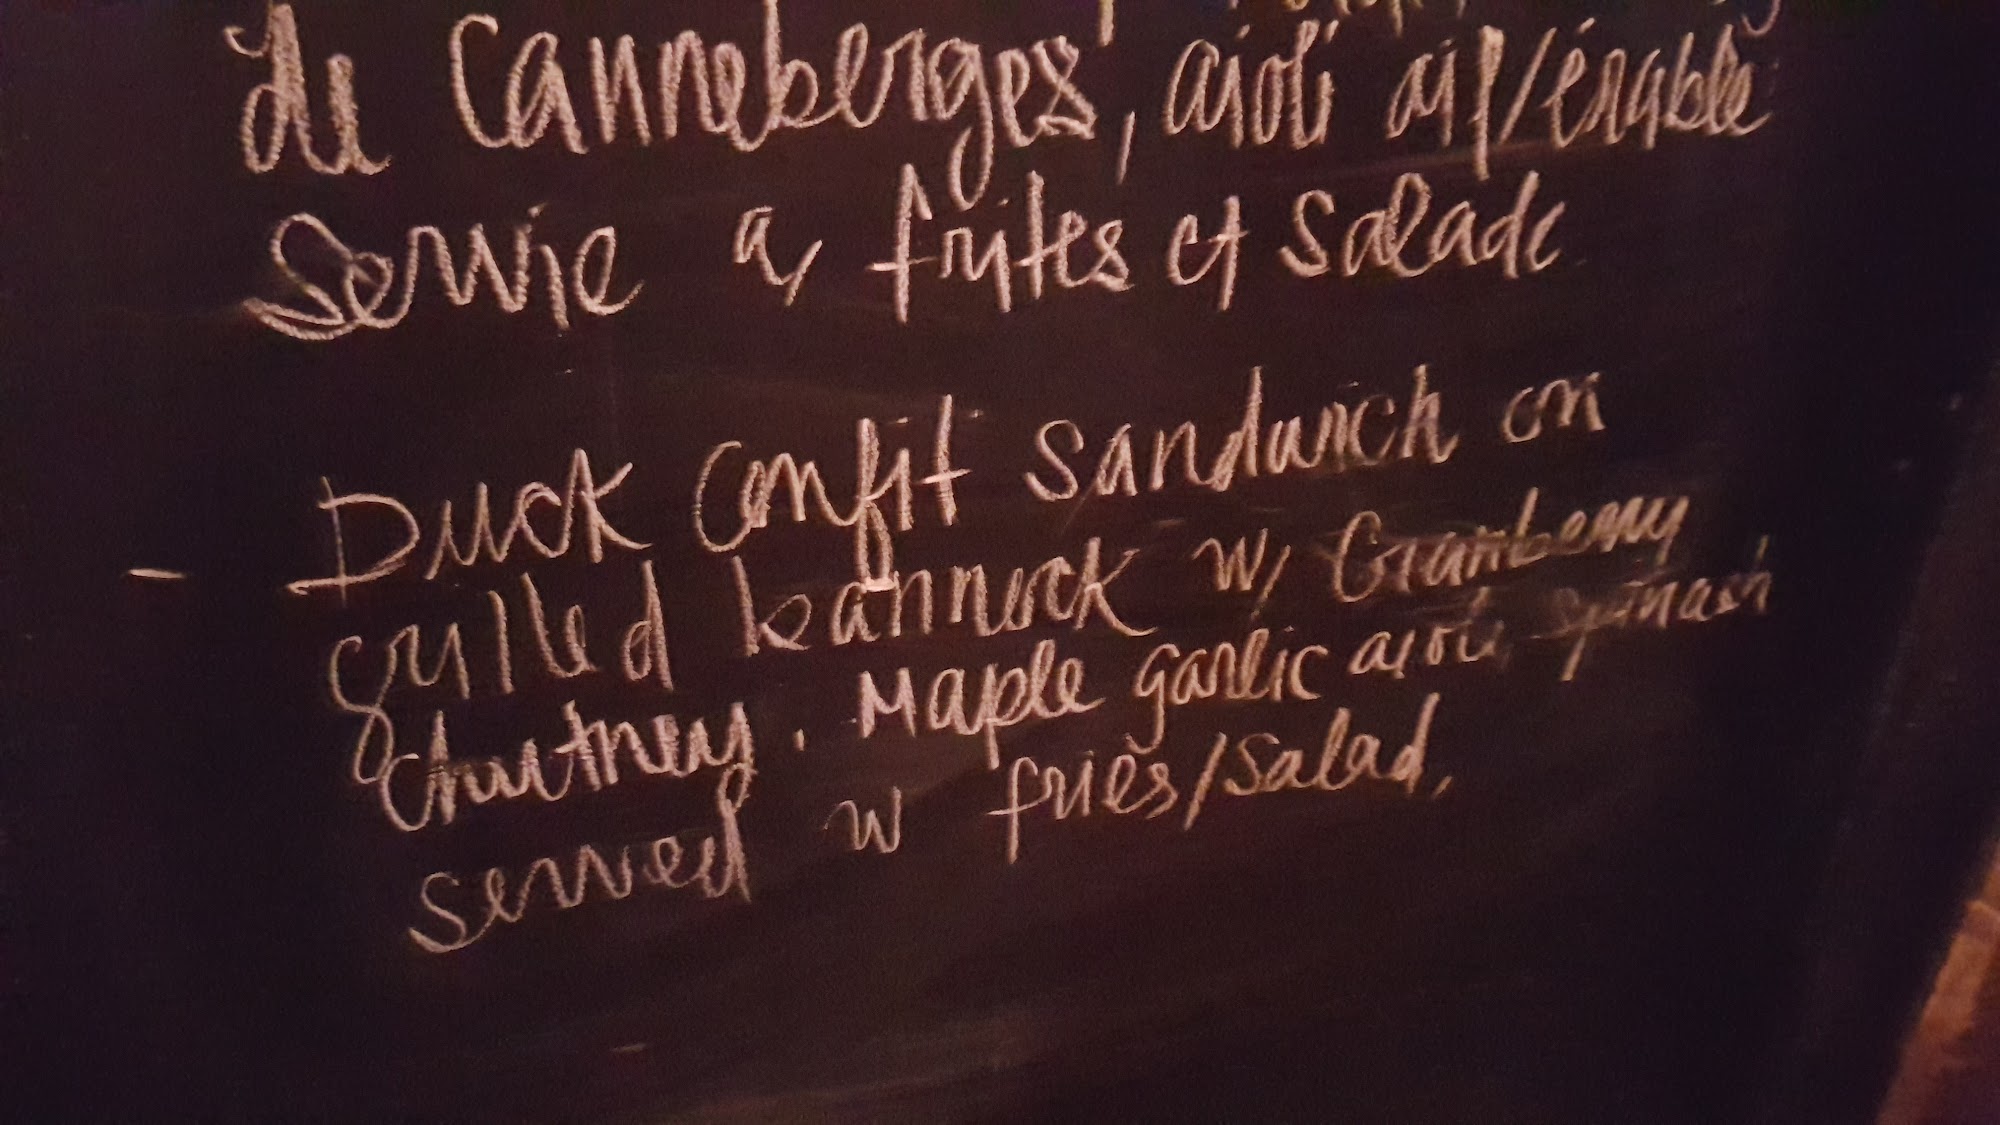 de Canneberges, aioli ail/érable
Servie a, frites et Salade
- Duck confit sandwich on
grilled bannock w/ Cramberry
Chutney. Maple garlic aioli, spinash
served w fries/salad,